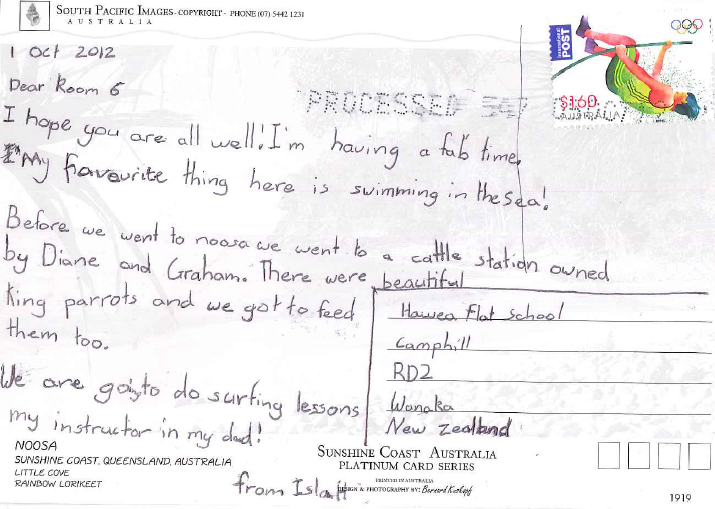 SOUTH PACIFIC IMAGES - COPYRIGHT - PHONE (07) 5442 1231
AUSTRALIA
International
POST
$1.60
AUSTRALIA
PROCESSED
1 Oct 2012
Dear Room 6
I hope you are all well! I'm having a fab time.
My favourite thing here is swimming in the sea!
Before we went to noosa we went to a cattle station owned
by Diane and Graham. There were beautiful
King parrots and we got to feed
them too.
We are going to do surfing lessons
my instructor in my dad!
from
Hawea Flat School
Camphill
RD2
Wanaka
New Zealand
NOOSA
SUNSHINE COAST, QUEENSLAND, AUSTRALIA
LITTLE COVE
RAINBOW LORIKEET
SUNSHINE COAST AUSTRALIA
PLATINUM CARD SERIES
PRINTED IN AUSTRALIA
DESIGN & PHOTOGRAPHY BY:
1919